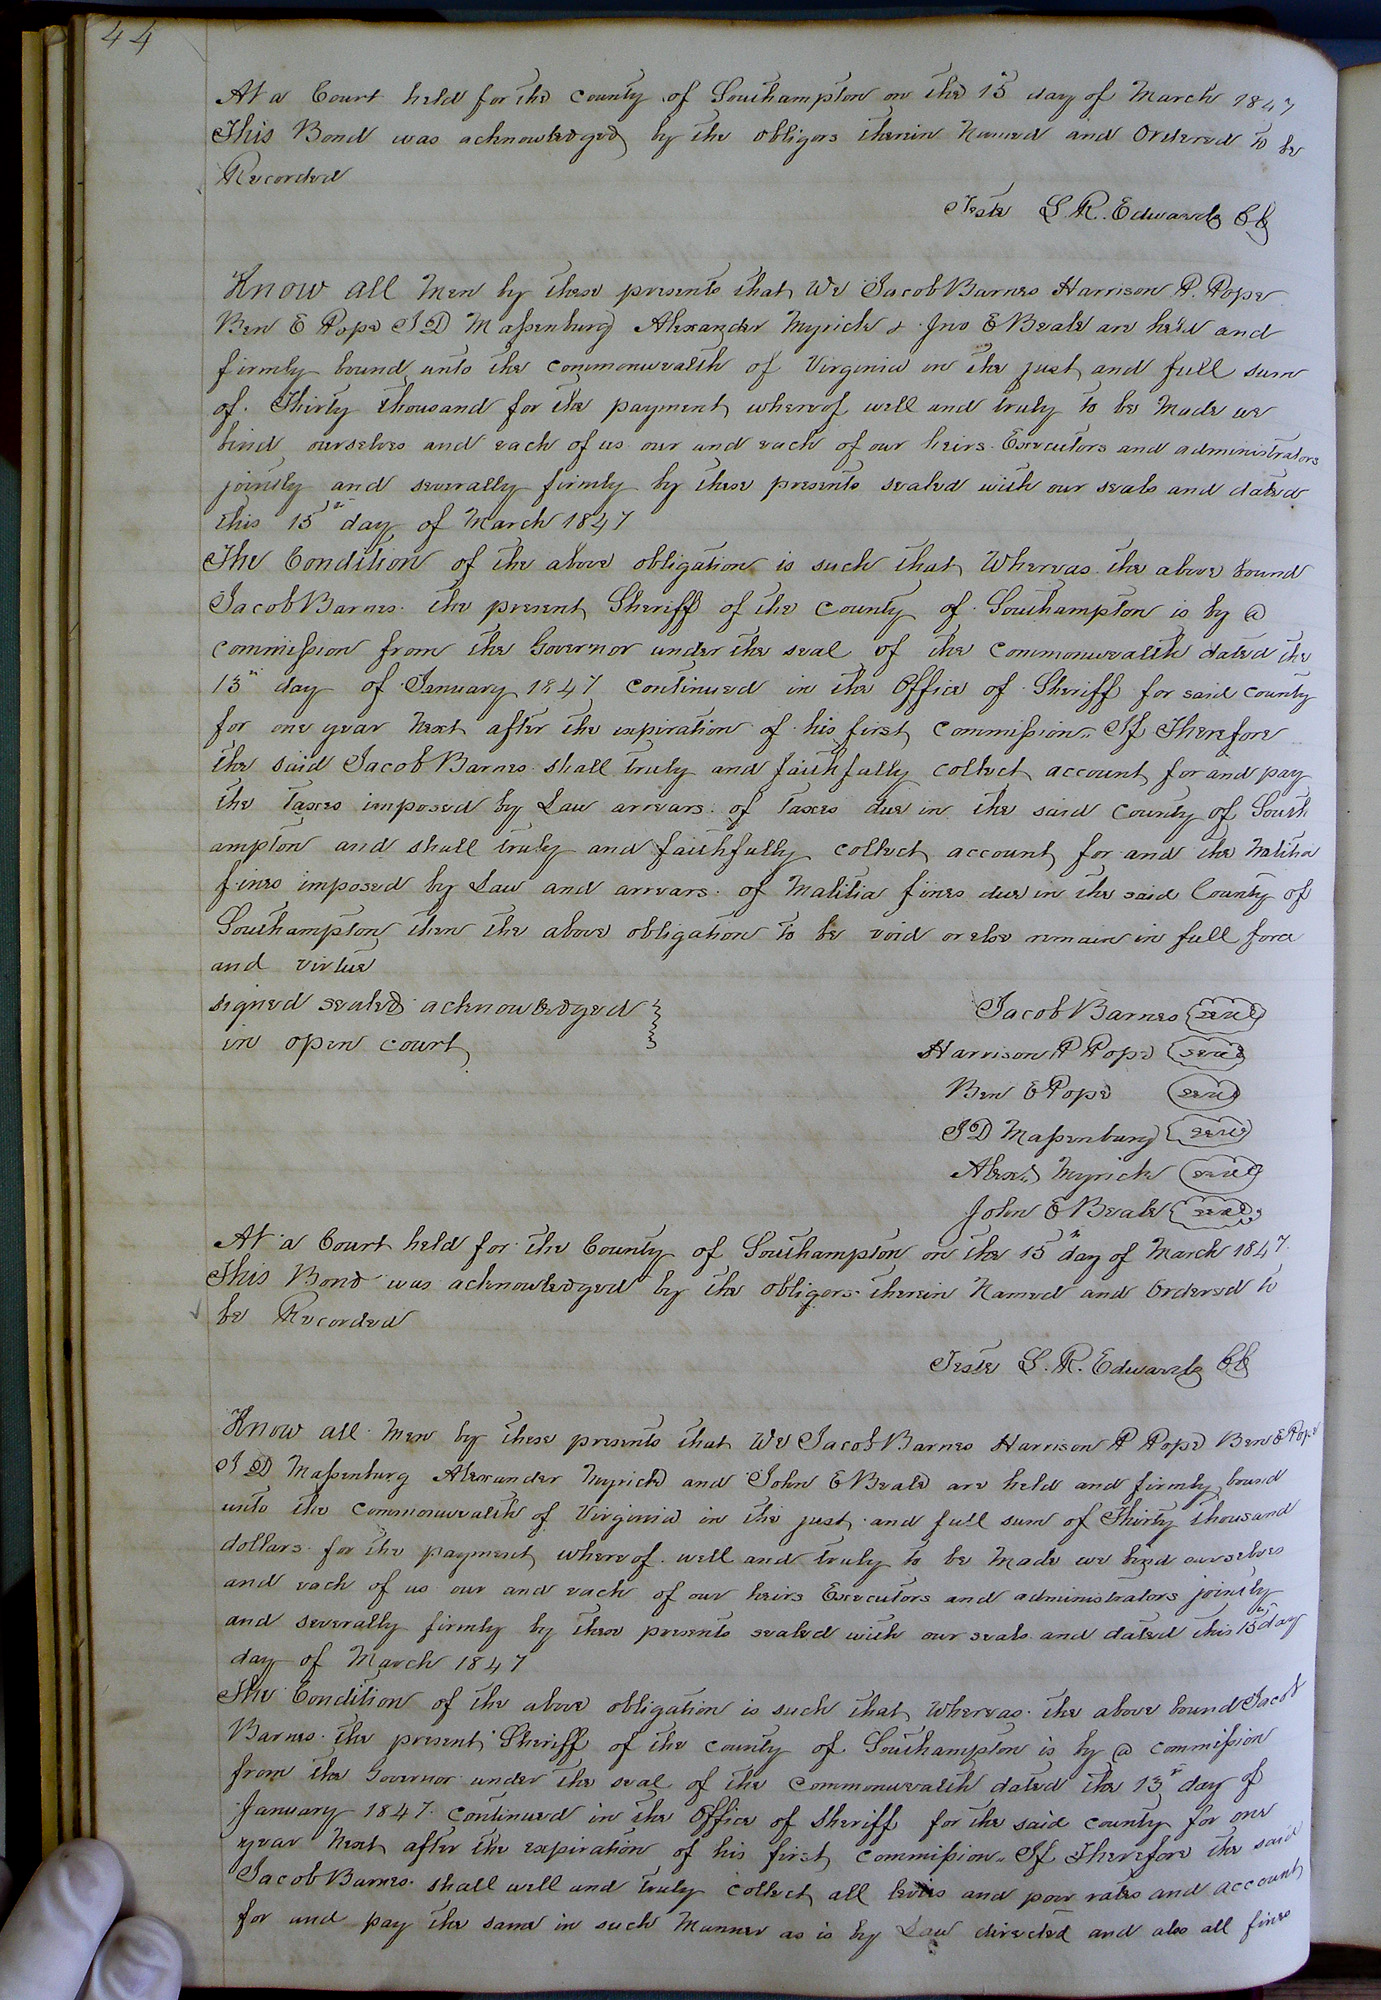 44
At a Court held for the County of Southampton on the 15th day of March 1847
This Bond was acknowledged by the obligors therein Named and Ordered to be
Recorded
Teste L. R. Edwards CC
Know all Men by these presents that We Jacob Barnes Harrison P. Pope
Ben E Pope J D Massenburg Alexander Myrick & Jno E Beale are held and
firmly bound unto the commonwealth of Virginia in the just and full sum
of Thirty thousand for the payment whereof well and truly to be Made we
bind ourselves and each of us our and each of our heirs Executors and administrators
jointly and severally firmly by these presents sealed with our seals and dated
this 15th day of March 1847
The Condition of the above obligation is such that Whereas the above bound
Jacob Barnes the present Sheriff of the County of Southampton is by a
commission from the Governor under the seal of the Commonwealth dated the
13th day of January 1847 continued in the Office of Sheriff for said county
for one year Next after the expiration of his first Commission. If Therefore
the said Jacob Barnes shall truly and faithfully collect account for and pay
the Taxes imposed by Law arrears of Taxes due in the said County of South
ampton and shall truly and faithfully collect account for and the Malitia
fines imposed by Law and arrears of Malitia fines due in the said County of
Southampton then the above obligation to be void or else remain in full force
and virtue
signed sealed acknowledged
in open court
Jacob Barnes seal
Harrison P Pope seal
Ben E Pope seal
J D Massenburg seal
Alexr Myrick seal
John E Beale seal
At a Court held for the County of Southampton on the 15th day of March 1847.
This Bond was acknowledged by the obligors therein Named and Ordered to
be Recorded
Teste L. R. Edwards CC
Know all Men by these presents that We Jacob Barnes Harrison P Pope Ben E Pope
J D Massenburg Alexander Myrick and John E Beale are held and firmly bound
unto the commonwealth of Virginia in the just and full sum of Thirty thousand
dollars for the payment whereof well and truly to be Made we bind ourselves
and each of us our and each of our heirs Executors and administrators jointly
and severally firmly by these presents sealed with our seals and dated this 15th day
day of March 1847
The Condition of the above obligation is such that Whereas the above bound Jacob
Barnes the present Sheriff of the county of Southampton is by a commission
from the Governor under the seal of the Commonwealth dated the 13th day of
January 1847 continued in the Office of Sheriff for the said county for one
year Next after the expiration of his first Commission. If Therefore the said
Jacob Barnes shall well and truly collect all levies and poor rates and account
for and pay the same in such Manner as is by Law directed and also all fines